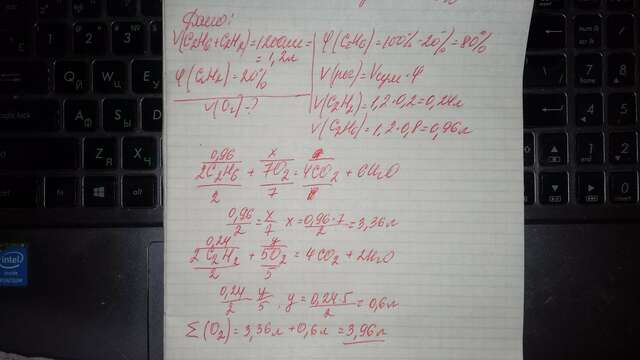 Дано:
V(C2H6+C2H2)=1200мл=
=1,2л
φ(C2H2)=20%
V(O2)-?
φ(C2H6)=100%-20%=80%
V(рог)=Vсум·φ
V(C2H2)=1,2·0,2=0,24л
V(C2H6)=1,2·0,8=0,96л
0,96 x
2C2H6 + 7O2 = 4CO2 + 6H2O
2 7
0,96/2 = x/7 x = 0,96·7/2 = 3,36л
0,24 y
2C2H2 + 5O2 = 4CO2 + 2H2O
2 5
0,24/2 y/5, y = 0,24·5/2 = 0,6л
Σ(O2) = 3,36л + 0,6л = 3,96л
intel
inside